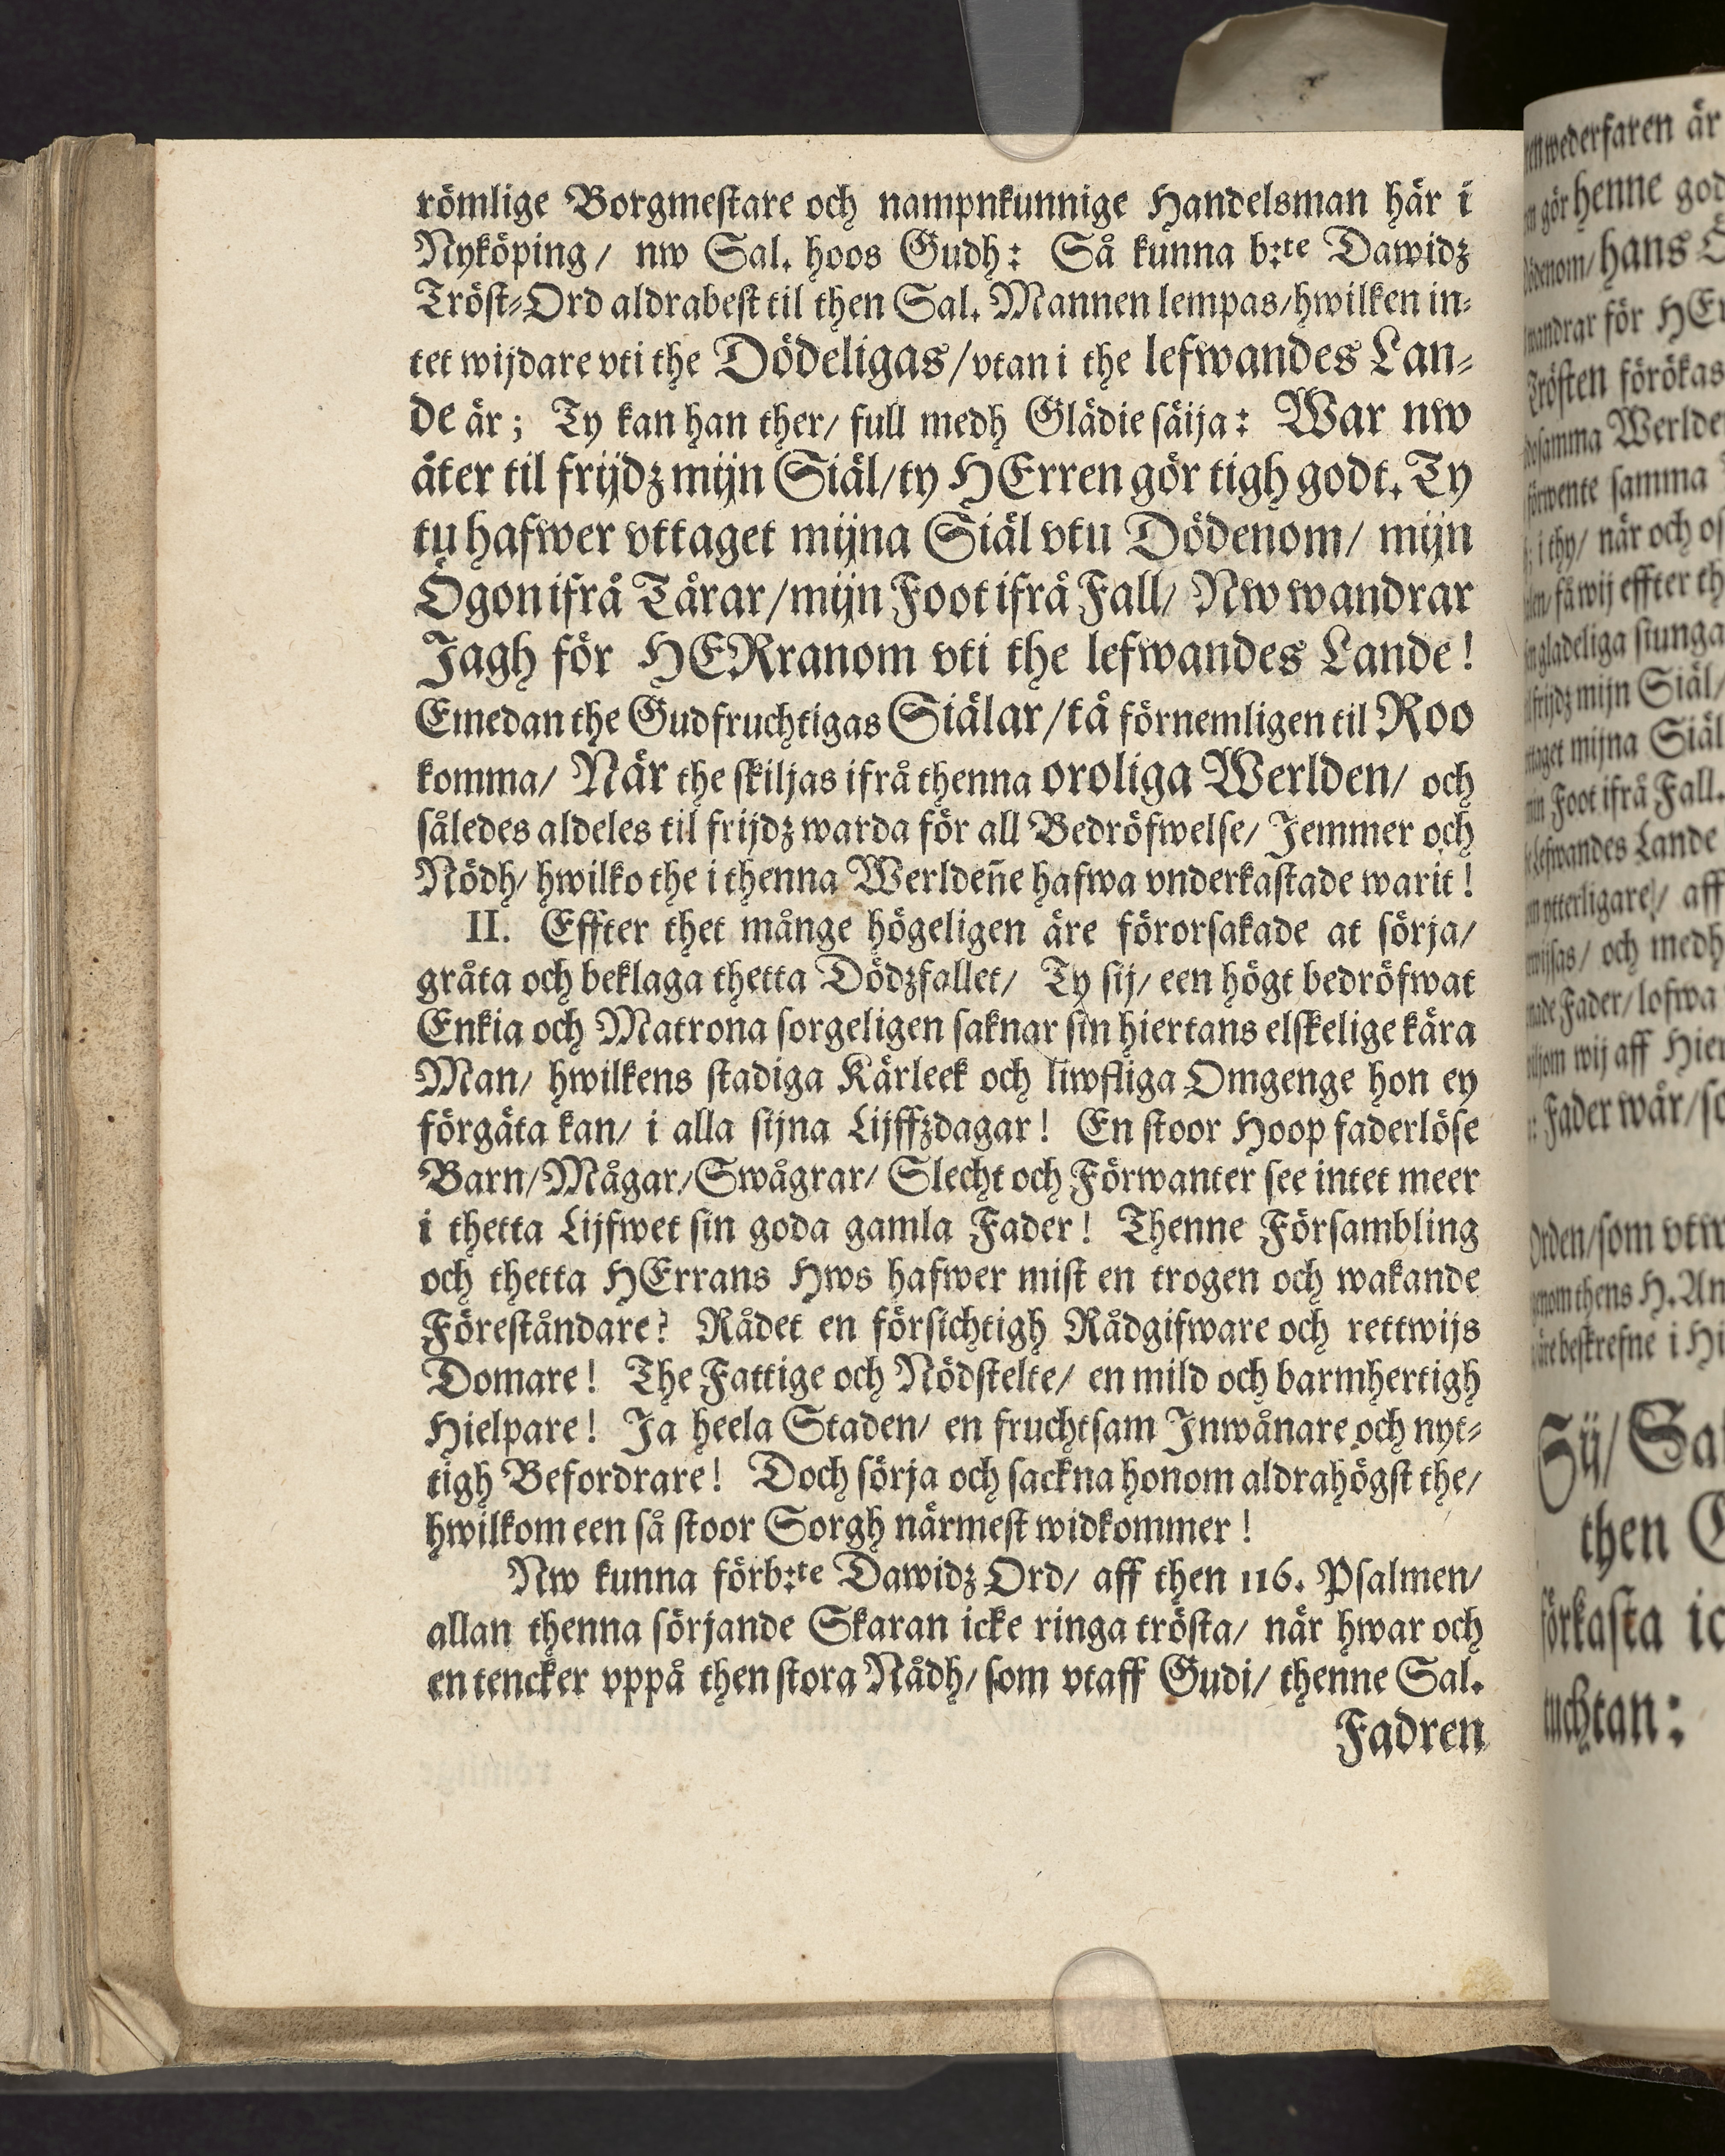 römlige Borgmestare och nampnkunnige Handelsman här i
Nyköping/ nw Sal. hoos Gudh: Så kunna b:te Dawidz
Tröst-Ord aldrabest til then Sal. Mannen lempas/hwilken in-
tet wijdare vti the Dödeligas/vtan i the lefwandes Lan-
de är; Ty kan han ther/ full medh Glädie säija: War nw
åter til frijdz mijn Siäl/ty HErren gör tigh godt. Ty
tu hafwer vttaget mijna Siäl vtu Dödenom/ mijn
Ögon ifrå Tårar/mijn Foot ifrå Fall/ Nw wandrar
Jagh för HERranom vti the lefwandes Lande!
Emedan the Gudfruchtigas Siälar/tå förnemligen til Roo
komma/ När the skiljas ifrå thenna oroliga Werlden/ och
således aldeles til frijdz warda för all Bedröfwelse/ Jemmer och
Nödh/ hwilko the i thenna Werldeñe hafwa vnderkastade warit!
II. Effter thet många högeligen äre förorsakade at sörja/
gråta och beklaga thetta Dödzfallet/ Ty sij/ een högt bedröfwat
Enkia och Matrona sorgeligen saknar sin hiertans elskelige kära
Man/ hwilkens stadiga Kärleek och liwfliga Omgenge hon ey
förgäta kan/ i alla sijna Lijffzdagar! En stoor Hoop faderlöse
Barn/Mågar/Swågrar/ Slecht och Förwanter see intet meer
i thetta Lijfwet sin goda gamla Fader! Thenne Försambling
och thetta HErrans Hws hafwer mist en trogen och wakande
Föreståndare? Rådet en försichtigh Rådgifware och rettwijs
Domare! The Fattige och Nödstelte/ en mild och barmhertigh
Hielpare! Ja heela Staden/ en fruchtsam Inwånare och nyt-
tigh Befordrare! Doch sörja och sackna honom aldrahögst the/
hwilkom een så stoor Sorgh närmest widkommer!
Nw kunna förb:te Dawidz Ord/ aff then 116. Psalmen/
allan thenna sörjande Skaran icke ringa trösta/ när hwar och
en tencker vppå then stora Nådh/ som vtaff Gudi/ thenne Sal.
Fadren
wederfaren är
gör henne god
hans
wandrar för
förökas
samma
samma
i thy/ när och
få wij effter
gladeliga
mijn Siäl/
mijna Siäl
Foot ifrå Fall.
Lande
ytterligare/ aff
och medh
Fader/ lofwa
wij aff
Fader wår/
som
thens H.
beskrefne i
Sij/
then
förkasta
tuchtan: